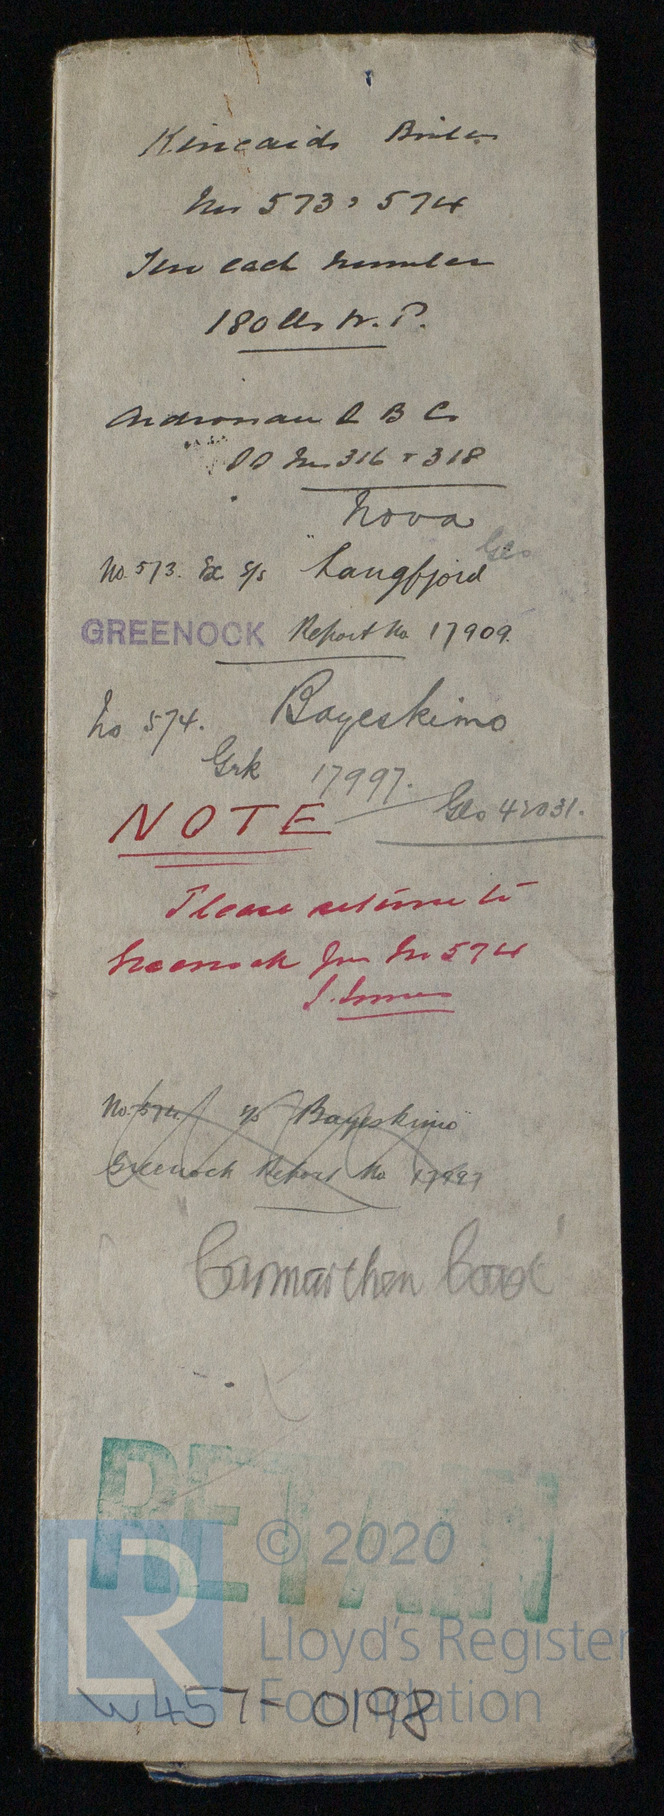 Kincaids Boilers
Nos 573 & 574
Two each number
180 lbs W.P.
Ardrossan D B Co
DD Nos 316 & 318
Nova
Glo
No. 573. Ex S/S Langfjord
GREENOCK Report No 17909.
No 574. Bayeskimo
Grk 17997.
Glo 42031.
NOTE
Please return to
Greenock for No 574
J. Innes
No. 574. S/S Bayeskimo
Greenock Report No 17997
Carmarthen Coast
RETAIN
© 2020
LR
Lloyd's Register
Foundation
W457-0198